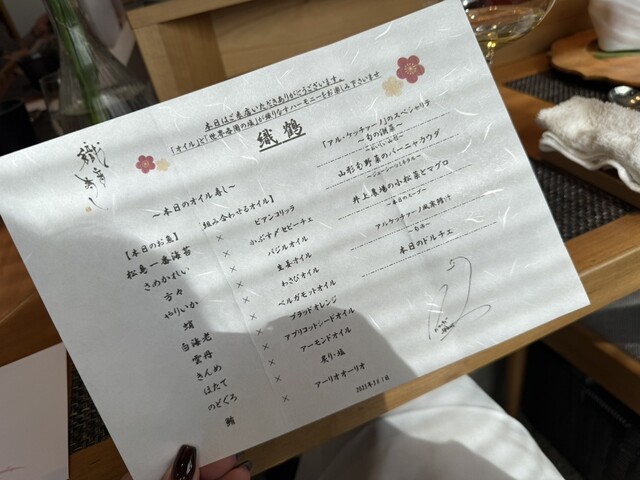 本日はご来店いただきありがとうございます。
「オイル」と「世界各国の塩」が織りなすハーモニーをお楽しみ下さいませ
織鶴
～本日のオイル寿し～
【本日のお皿】
組み合わせるオイル】
松島一番海苔 × ビアンコリッラ
さめかれい × かぶす〆セビーチェ
方々 × バジルオイル
やりいか × 生姜オイル
蛸 × わさびオイル
白海老 × ベルガモットオイル
雲丹 × ブラッドオレンジ
きんめ × アプリコットシードオイル
ほたて × アーモンドオイル
のどぐろ × 炙り・塩
鮪 × アーリオオーリオ
「アル・ケッチァーノ」のスペシャリテ
～旬の鮮菜～
山形旬野菜のバーニャカウダ
井上農場の小松菜とマグロ
～本日のスープ～
アルケッチァーノ風寒鱈汁
～甘味～
本日のドルチェ